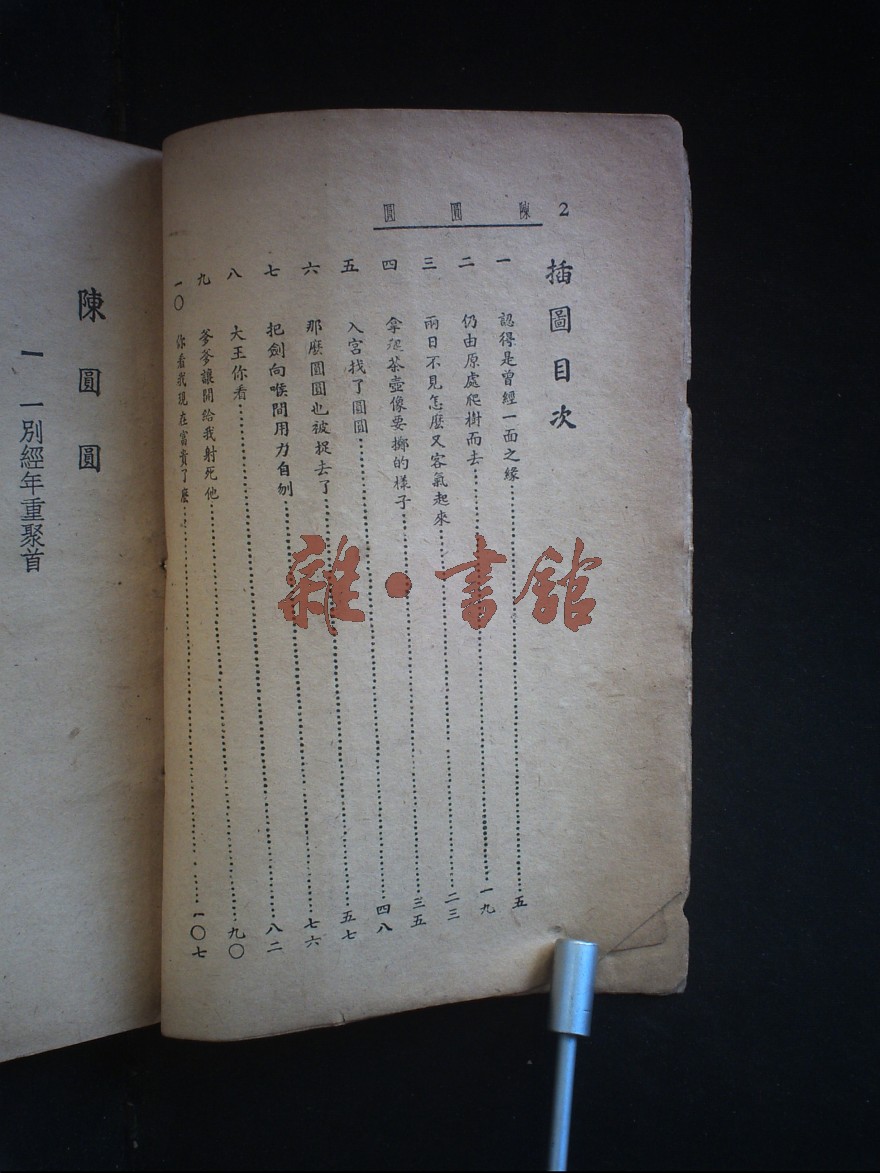 2 陳圓圓
插圖目次
一 認得是曾經一面之緣 五
二 仍由原處爬樹而去 一九
三 兩日不見怎麼又客氣起來 二三
四 拿起茶壺像要擲的樣子 三五
五 入宮找了圓圓 四八
六 那麼圓圓也被捉去了 五七
七 把劍向喉間用力自刎 七六
八 大王你看 八二
九 爹爹讓開給我射死他 九〇
一〇 你看我現在富貴了麼 一〇七
陳圓圓
一 一別經年重聚首
雜·書館